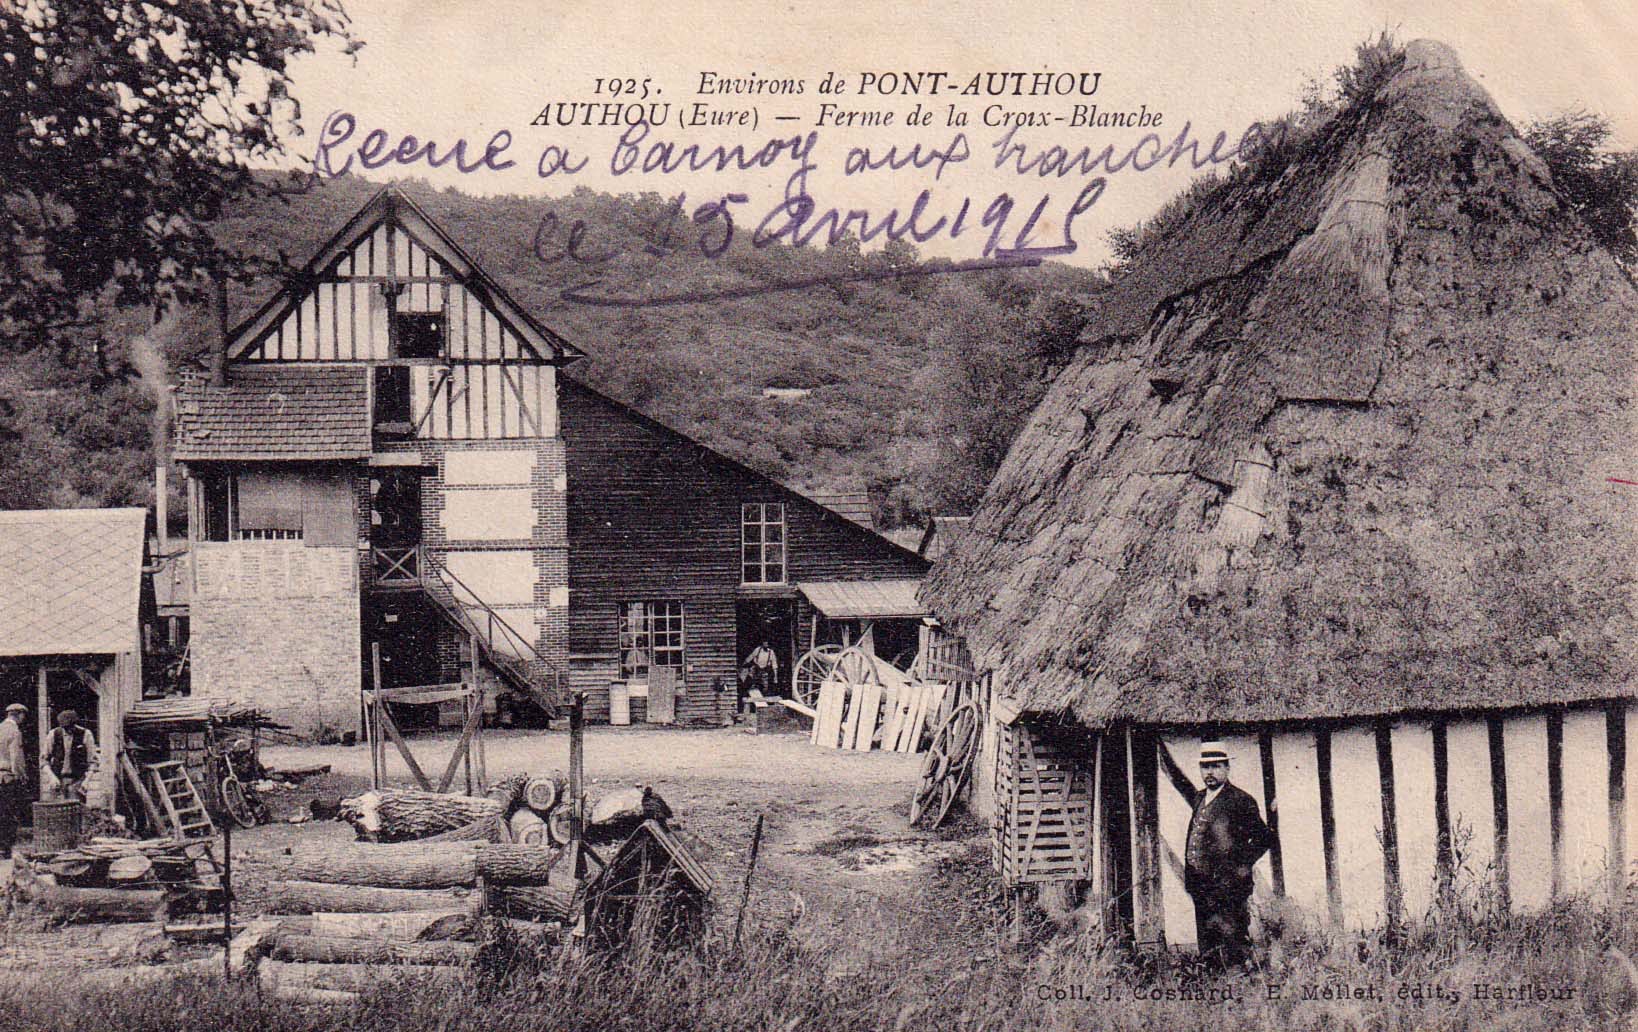 1925. Environs de PONT-AUTHOU
AUTHOU (Eure) — Ferme de la Croix-Blanche
Recue a Carnoy aux tranchee
le 15 avril 1915
Coll. J. Cosnard. E. Mellet, édit., Harfleur